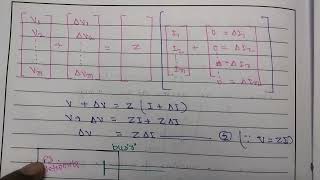 [V1 V2 ⋮ Vn] + [ΔV1 ΔV2 ⋮ ΔVn] = Z [[I1 I2 ⋮ In] + [0 = ΔI1 0 = ΔI2 ⋮ 0 = ΔIn]]
V + ΔV = Z (I + ΔI)
V + ΔV = ZI + ZΔI
ΔV = ZΔI ——— ⑤ (∵ V=ZI)